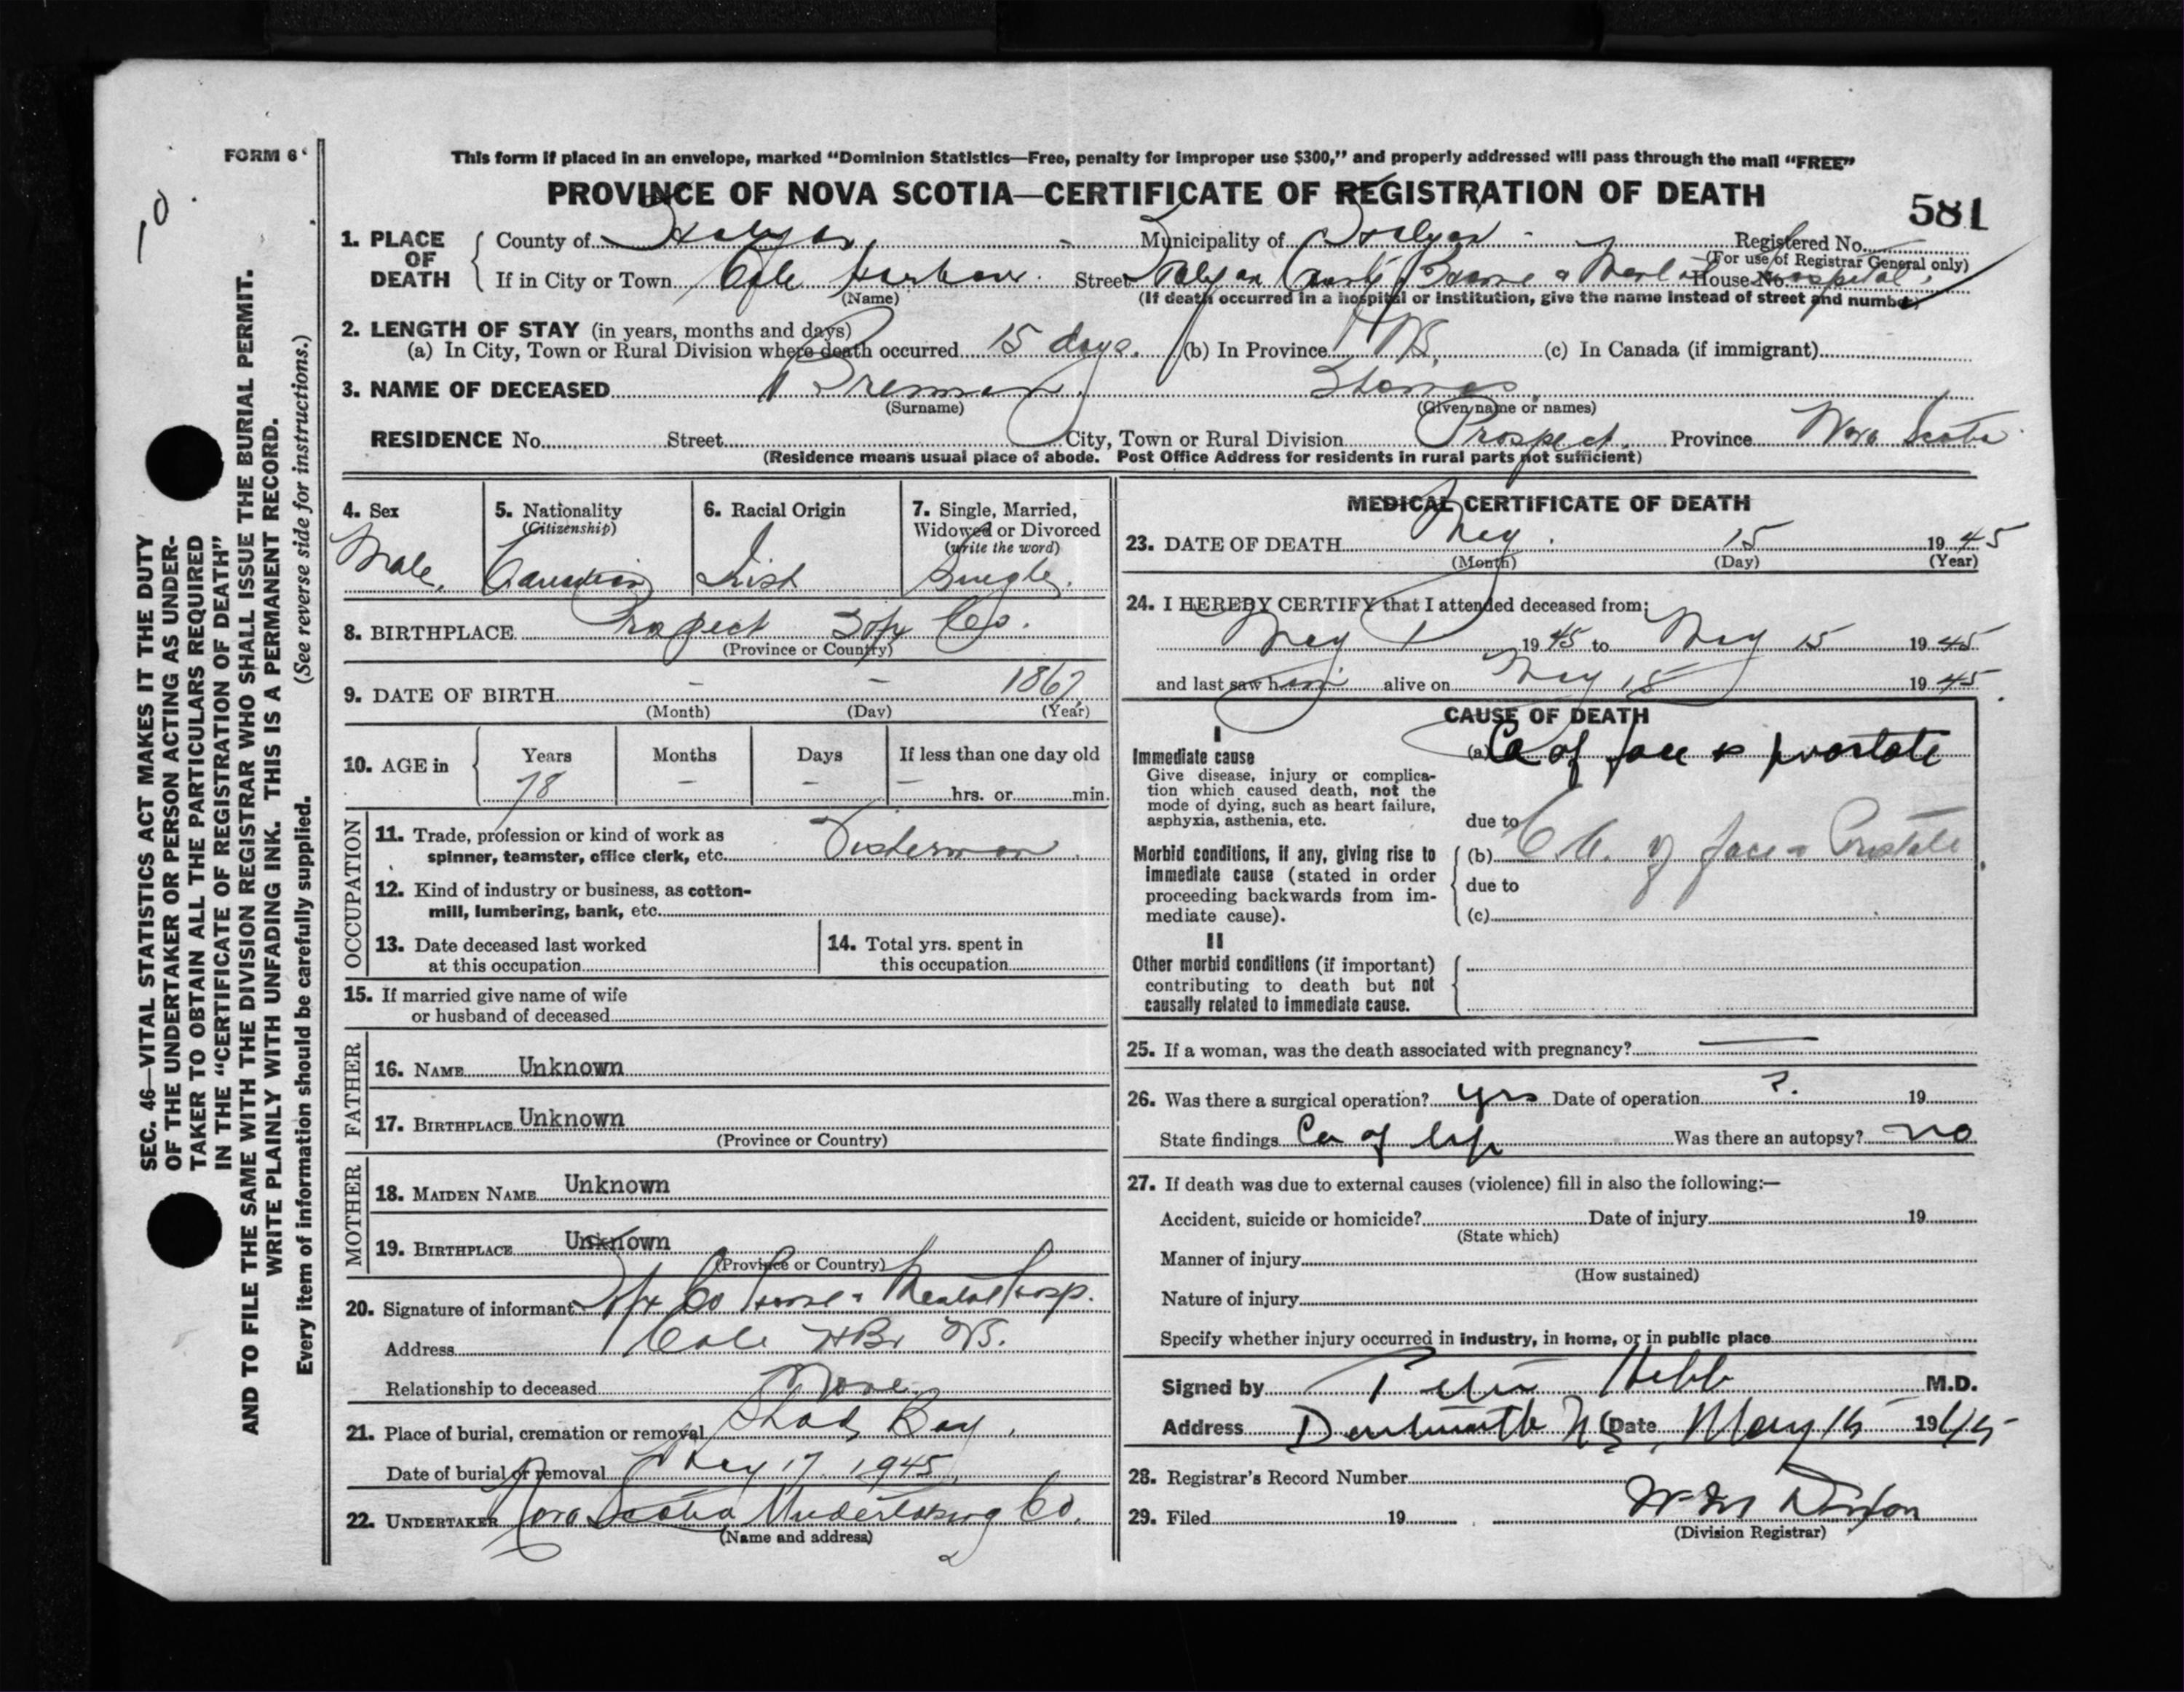 FORM 6
This form if placed in an envelope, marked “Dominion Statistics—Free, penalty for improper use $300,” and properly addressed will pass through the mail “FREE”
PROVINCE OF NOVA SCOTIA—CERTIFICATE OF REGISTRATION OF DEATH
581
1. PLACE OF DEATH
County of Halifax Municipality of Halifax Registered No.
(For use of Registrar General only)
If in City or Town Cole Harbour Street Halifax County Home & Mental Hospital House No.
(Name) (If death occurred in a hospital or institution, give the name instead of street and number)
2. LENGTH OF STAY (in years, months and days)
(a) In City, Town or Rural Division where death occurred 15 days. (b) In Province NS. (c) In Canada (if immigrant)
3. NAME OF DECEASED Brennan Thomas
(Surname) (Given name or names)
RESIDENCE No. Street City, Town or Rural Division Prospect. Province Nova Scotia
(Residence means usual place of abode. Post Office Address for residents in rural parts not sufficient)
4. Sex
Male.
5. Nationality
(Citizenship)
Canadian
6. Racial Origin
Irish
7. Single, Married, Widowed or Divorced
(write the word)
Single.
8. BIRTHPLACE Prospect Hfx Co.
(Province or Country)
9. DATE OF BIRTH - - 1867
(Month) (Day) (Year)
10. AGE in Years Months Days If less than one day old
78 - - - hrs. or min.
OCCUPATION
11. Trade, profession or kind of work as
spinner, teamster, office clerk, etc. Fisherman.
12. Kind of industry or business, as cotton-
mill, lumbering, bank, etc.
13. Date deceased last worked
at this occupation
14. Total yrs. spent in
this occupation
15. If married give name of wife
or husband of deceased
FATHER
16. NAME Unknown
17. BIRTHPLACE Unknown
(Province or Country)
MOTHER
18. MAIDEN NAME Unknown
19. BIRTHPLACE Unknown
(Province or Country)
20. Signature of informant Hfx Co Home & Mental Hosp.
Address Cole HBr NS.
Relationship to deceased None
21. Place of burial, cremation or removal Shad Bay.
Date of burial or removal May 17 1945.
22. UNDERTAKER Nova Scotia Undertaking Co.
(Name and address)
MEDICAL CERTIFICATE OF DEATH
23. DATE OF DEATH May 15 1945
(Month) (Day) (Year)
24. I HEREBY CERTIFY that I attended deceased from:
May 1 1945 to May 15 1945
and last saw him alive on May 15 1945
CAUSE OF DEATH
I
Immediate cause (a) Ca of face & prostate
Give disease, injury or complica-
tion which caused death, not the
mode of dying, such as heart failure,
asphyxia, asthenia, etc.
due to
Morbid conditions, if any, giving rise to (b) C.A. of face & Prostate.
immediate cause (stated in order
proceeding backwards from im-
mediate cause).
due to
(c)
II
Other morbid conditions (if important)
contributing to death but not
causally related to immediate cause.
25. If a woman, was the death associated with pregnancy? —
26. Was there a surgical operation? yes Date of operation ?. 19
State findings Ca of lip Was there an autopsy? no
27. If death was due to external causes (violence) fill in also the following:—
Accident, suicide or homicide? Date of injury 19
(State which)
Manner of injury
(How sustained)
Nature of injury
Specify whether injury occurred in industry, in home, or in public place
Signed by Peter Hebb M.D.
Address Dartmouth NS Date May 15 1945
28. Registrar's Record Number
29. Filed 19 W M Dixon
(Division Registrar)
SEC. 46—VITAL STATISTICS ACT MAKES IT THE DUTY
OF THE UNDERTAKER OR PERSON ACTING AS UNDER-
TAKER TO OBTAIN ALL THE PARTICULARS REQUIRED
IN THE “CERTIFICATE OF REGISTRATION OF DEATH”
AND TO FILE THE SAME WITH THE DIVISION REGISTRAR WHO SHALL ISSUE THE BURIAL PERMIT.
WRITE PLAINLY WITH UNFADING INK. THIS IS A PERMANENT RECORD.
Every item of information should be carefully supplied. (See reverse side for instructions.)